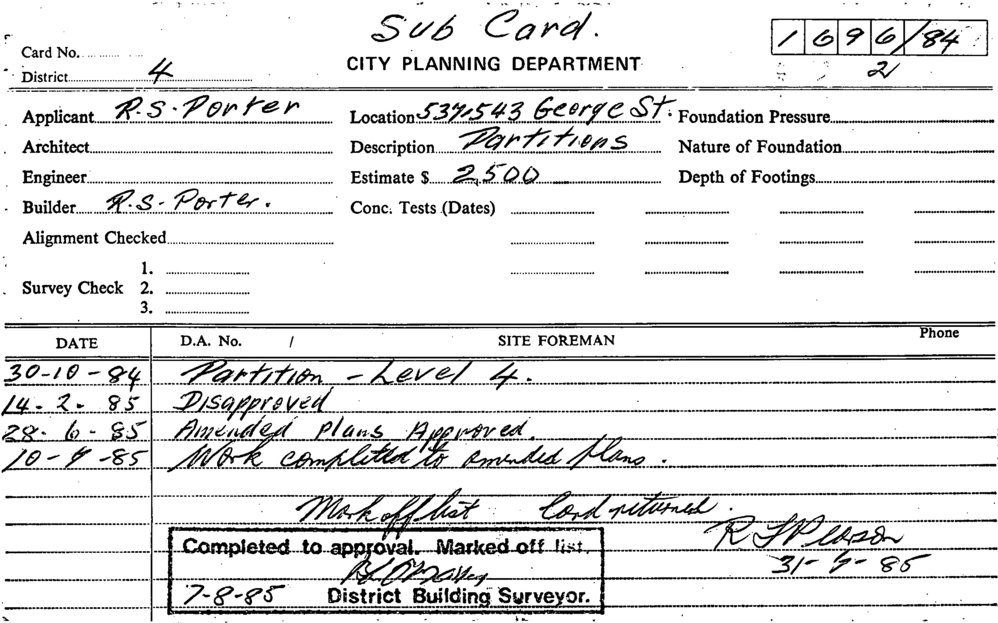 Sub Card.
1 6 9 6/84
2
Card No.
District 4
CITY PLANNING DEPARTMENT
Applicant R.S. Porter Location 537-543 George St. Foundation Pressure
Architect Description Partitions Nature of Foundation
Engineer Estimate $ 2,500 Depth of Footings
Builder R.S. Porter. Conc. Tests (Dates)
Alignment Checked
1.
Survey Check 2.
3.
DATE D.A. No. / SITE FOREMAN Phone
30-10-84 Partition - Level 4.
14-2-85 Disapproved
28-6-85 Amended Plans Approved.
10-7-85 Work completed to amended plans.
Mark off list Card returned.
31-7-85
Completed to approval. Marked off list.
7-8-85 District Building Surveyor.